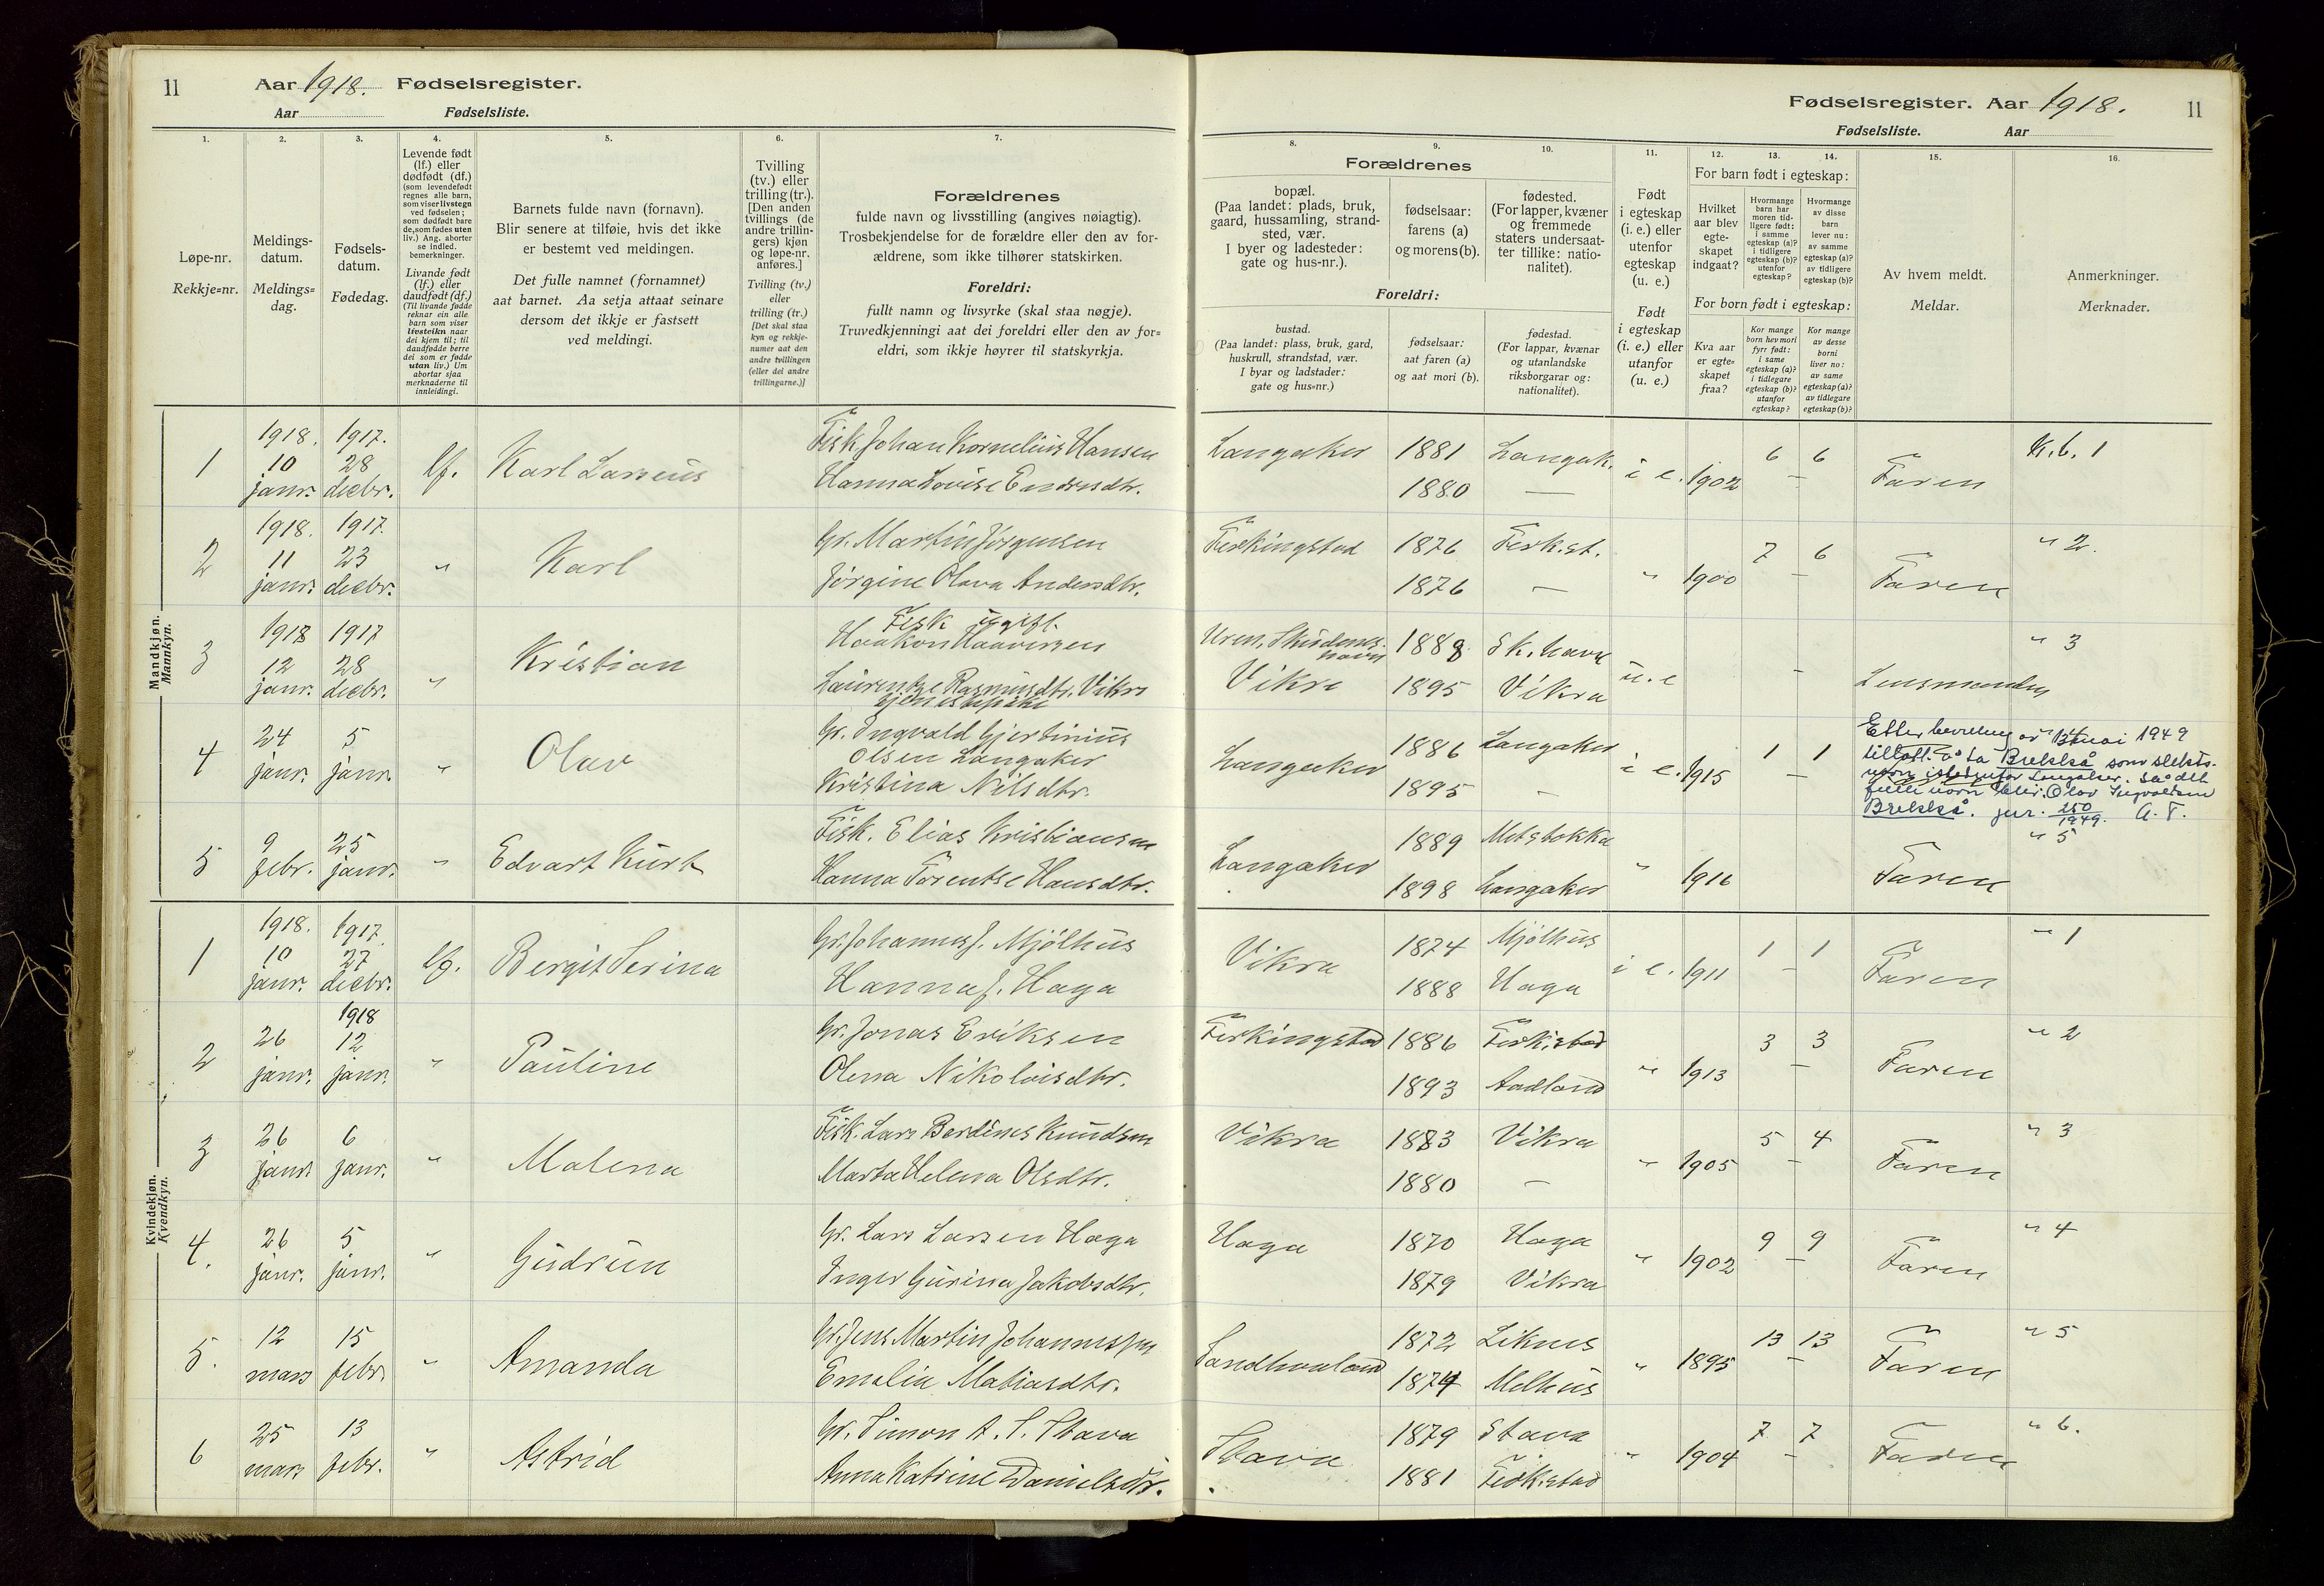 11 Aar 1918. Fødselsregister.
Aar Fødselsliste.
1. 2. 3. 4. 5. 6. 7.
Løpe-nr.
Rekkje=nr.
Meldings-
datum.
Meldings=
dag.
Fødsels-
datum.
Fødedag.
Levende født
(lf.) eller
dødfødt (df.)
(som levendefødt
regnes alle barn,
som viser livstegn
ved fødselen;
som dødfødt bare
de, som fødes uten
liv.) Ang. aborter
se indled.
bemerkninger.
Livande født
(lf.) eller
daudfødt (df.)
(Til livande fødde
reknar ein alle
barn som viser
livsteikn naar
dei kjem til; til
daudfødde berre
dei som er fødde
utan liv.) Um
abortar sjaa
merknaderne til
innleidingi.
Barnets fulde navn (fornavn).
Blir senere at tilføie, hvis det ikke
er bestemt ved meldingen.
Det fulle namnet (fornamnet)
aat barnet. Aa setja attaat seinare
dersom det ikkje er fastsett
ved meldingi.
Tvilling
(tv.) eller
trilling (tr.).
[Den anden
tvillings (de
andre trillin-
gers) kjøn
og løpe-nr.
anføres.]
Tvilling (tv.)
eller
trilling (tr.)
[Det skal staa
kyn og rekkje-
numer aat den
andre tvillingen
(eller dei andre
trillingarne.)]
Forældrenes
fulde navn og livsstilling (angives nøiagtig).
Trosbekjendelse for de forældre eller den av for-
ældrene, som ikke tilhører statskirken.
Foreldri:
fullt namn og livsyrke (skal staa nøgje).
Truvedkjenningi aat dei foreldri eller den av for=
eldri, som ikkje høyrer til statskyrkja.
Mandkjøn.
Mannkyn.
1 1918. 10 janr. 1917. 28 decbr. lf. Karl Larseus
Fisk Johan Kornelius Hansen
Hanna Lovise Endresdtr.
2 1918. 11 janr. 1917. 23 decbr. " Karl
Gr. Martin Jørgensen
Jørgine Olava Andersdtr.
3 1918 12 janr. 1917 28 decbr. " Kristian
Fisk ugift.
Haakon Haaversen
Laurentze Rasmusdtr. Vikre
tjenestepike
4 24 janr. 5 janr. " Olav
Gr. Ingvald Gjertinius
Olsen Langaker
Kristina Nilsdtr.
5 9 febr. 25 janr. " Edvart Kurt
Fisk. Elias Kristiansen
Hanna Torentse Hansdtr.
Kvindekjøn.
Kvendkyn.
1 1918. 10 janr. 1917. 27 decbr. lf. Bergit Serina
Gr. Johannes J. Mjølhus
Hanna J. Haga
2 26 janr. 1918 12 janr. " Pauline
Gr. Jonas Eriksen
Olena Nikolaisdtr.
3 26 janr. 6 janr. " Malena
Fisk. Lars Berdines Knudsen
Marta Helena Olsdtr.
4. 26 janr. 5 janr. " Gudrun
Gr. Lars Larsen Haga
Inger Gurina Jakobsdtr.
5. 12 mars 15 febr. " Amanda
Gr. Jens Martin Johannessen
Emalia Matiasdtr.
6 25 mars 13 febr. " Astrid
Gr. Simon A. S. Stava
Anna Katrine Danielsdtr.
Fødselsregister. Aar 1918. 11
Fødselsliste. Aar
8. 9. 10. 11. 12. 13. 14. 15. 16.
Forældrenes
bopæl.
(Paa landet: plads, bruk,
gaard, hussamling, strand-
sted, vær.
I byer og ladesteder:
gate og hus-nr.).
fødselsaar:
farens (a)
og morens (b).
fødested.
(For lapper, kvæner
og fremmede
staters undersaat-
ter tillike: natio-
nalitet).
Foreldri:
bustad.
(Paa landet: plass, bruk, gard,
huskrull, strandstad, vær.
I byar og ladstader:
gate og hus=nr.)
fødselsaar:
aat faren (a)
og aat mori (b).
fødestad.
(For lappar, kvænar
og utanlandske
riksborgarar og:
nationalitet).
Født
i egteskap
(i. e.) eller
utenfor
egteskap
(u. e.)
Født
i egteskap
(i. e.) eller
utanfor
(u. e.)
For barn født i egteskap:
Hvilket
aar blev
egte-
skapet
indgaat?
Hvormange
barn har
moren tid-
ligere født:
i samme
egteskap (a)?
i tidligere
egteskap (b)?
utenfor
egteskap?
Hvormange
av disse
barn
lever nu:
av samme
egteskap (a)?
av tidligere
egteskap (b)?
For born født i egteskap:
Kva aar
er egte=
skapet
fraa?
Kor mange
born hev mori
fyrr født:
i same
egteskap (a)?
i tidlegare
egteskap (b)?
utanfor
egteskap?
Kor mange
av desse
borni
liver no:
av same
egteskap (a)?
av tidlegare
egteskap (b)?
Av hvem meldt.
Meldar.
Anmerkninger.
Merknader.
Langaker 1881 Langak. i e. 1902 6 6 Faren K. b. 1
1880 —
Ferkingstad 1876 Ferk.st. " 1900 7 6 Faren " 2.
1876 —
Uren, Skudenes- 1888 Sk. havn u. e - Lensmanden " 3
havn
Vikre 1895 Vikra
Langaker 1886 Langaker i e. 1915 1 1
1895 -
Etter bevilling av mai 1949
tillatt å ta Brekkå som slekts-
navn istedenfor Langaker. så det
fulle navn blir: Olav Ingvaldsen
Brekkå. jnr. 250/1949. A. T.
Langaker 1889 Metstokka " 1916 Faren " 5
1898 Langaker
Vikra 1874 Mjølhus i e. 1911 1 1 Faren " 1
1888 Haga
Ferkingstad 1886 Ferk.stad " 1913 3 3 Faren " 2
1893 Aadland
Vikra 1883 Vikra " 1905 5 4 Faren " 3
1880 —
Haga 1870 Haga " 1902 9 9 Faren " 4
1879 Vikra
Sandhouland 1872 Liknes " 1895 13 13 Faren " 5
1874 Melhus
Stava 1879 Stava " 1904 7 7 Faren " 6.
1881 Ferk.stad